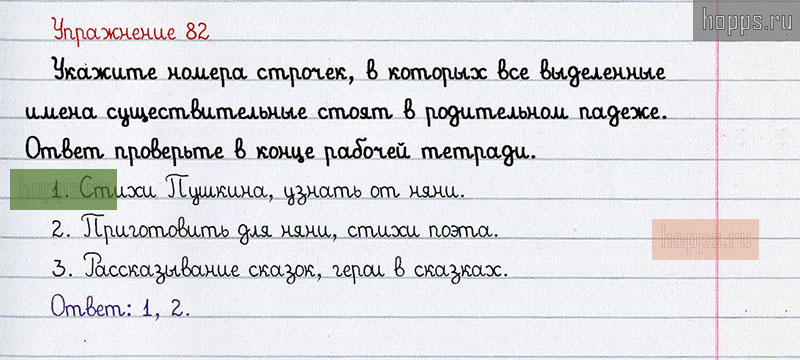 hopps.ru
Упражнение 82
Укажите номера строчек, в которых все выделенные
имена существительные стоят в родительном падеже.
Ответ проверьте в конце рабочей тетради.
1. Стихи Пушкина, узнать от няни.
2. Приготовить для няни, стихи поэта.
hopps.ru
3. Рассказывание сказок, герои в сказках.
Ответ: 1, 2.